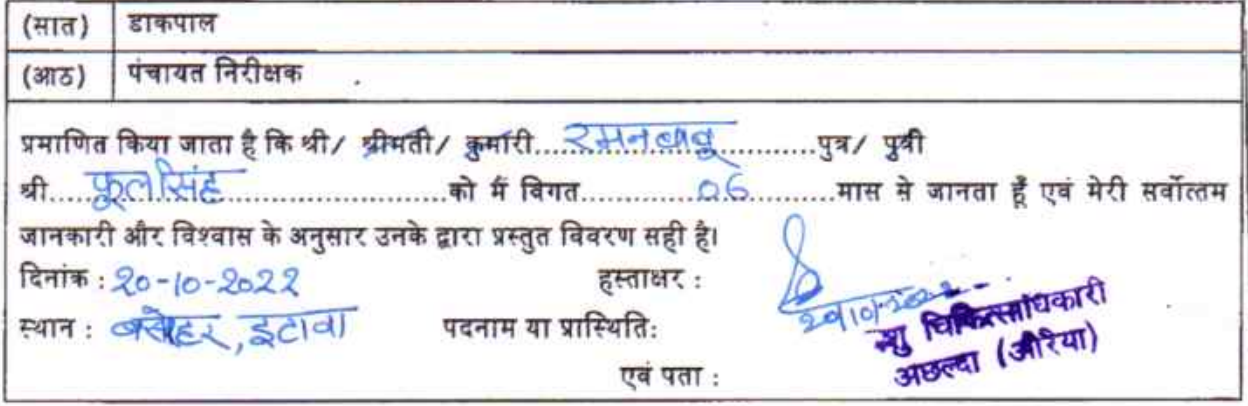 (सात) डाकपाल
(आठ) पंचायत निरीक्षक
प्रमाणित किया जाता है कि श्री/ श्रीमती/ कुमारी....रमनबाबू..............पुत्र/ पुत्री
श्री....फूलसिंह..........................को मैं विगत...............06............मास से जानता हूँ एवं मेरी सर्वोत्तम
जानकारी और विश्वास के अनुसार उनके द्वारा प्रस्तुत विवरण सही है।
दिनांक : 20-10-2022 हस्ताक्षर :
20/10/2022
स्थान : बसेहर, इटावा पदनाम या प्रास्थिति: चिकित्साधिकारी
अछल्दा (औरैया)
एवं पता :